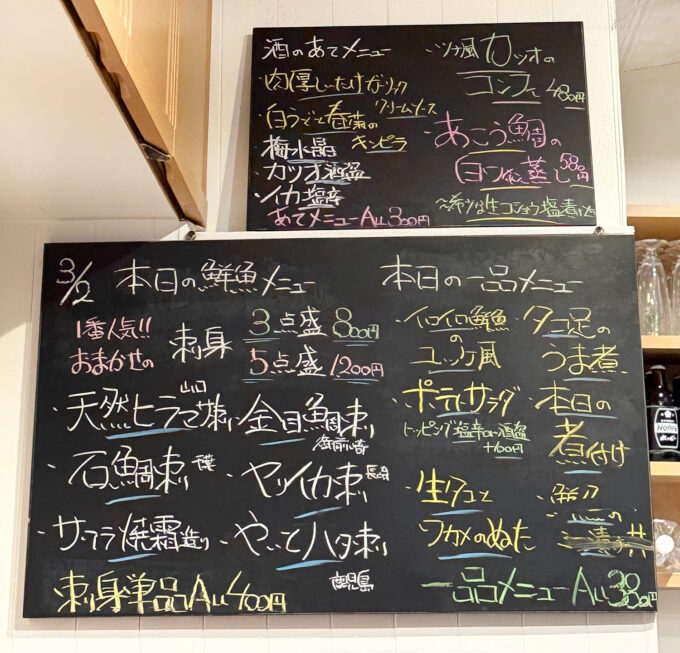 酒のあてメニュー
・肉厚しいたけガーリック
クリームソース
・白うどと春菊の
キンピラ
・梅水晶
・カツオ酒盗
・イカ塩辛
あてメニューALL300円
・ツナ風カツオの
コンフィ 480円
・あこう鯛の
白ワイン蒸し 580円
〜希少な生コショウ塩煮
3/2 本日の鮮魚メニュー
1番人気!!
おまかせの
刺身
3点盛 800円
5点盛 1200円
山口
・天然ヒラマサ刺し
・石鯛刺し 千葉
・サワラ焼霜造り
・金目鯛刺し
御前崎
・ヤリイカ刺し 長崎
・やいとハタ刺し
鹿児島
刺身単品ALL400円
本日の一品メニュー
・イロイロ鮮魚
の
ユッケ風
・ポテトサラダ
トッピング塩辛or酒盗
+100円
・生タコと
ワカメのぬた
・タコ足の
うま煮
・本日の
煮付け
一品メニューALL380円
HOPPY
ホッピー